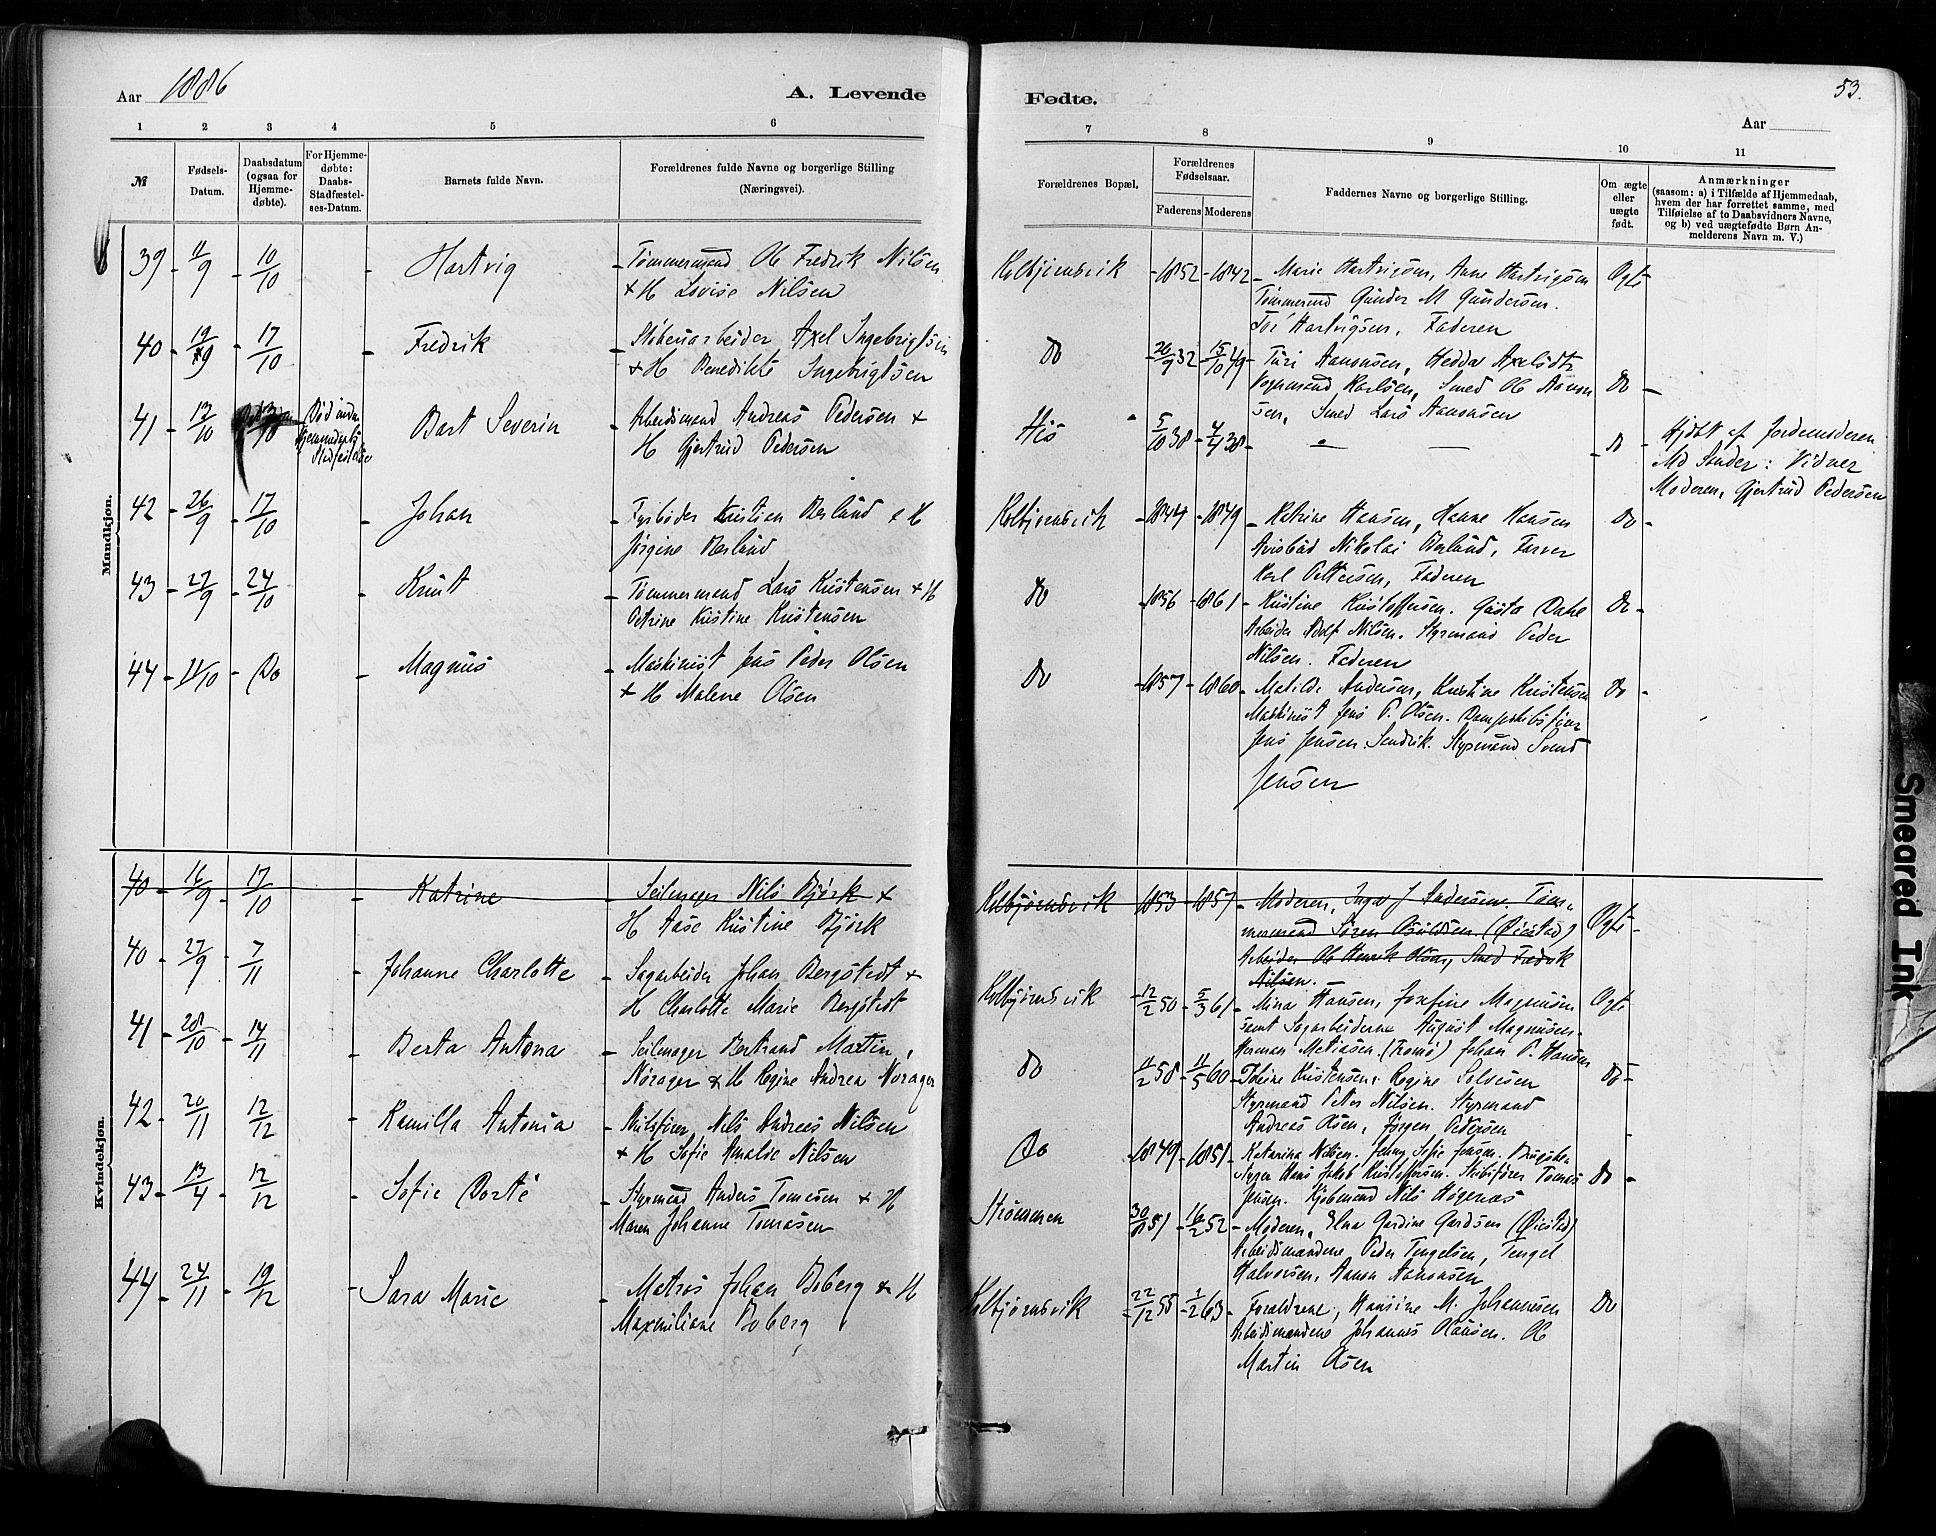 Aar 1886
A. Levende
Fødte.
53.
Aar
1 2 3 4 5 6 7 8 9 10 11
№
Fødsels-
Datum.
Daabsdatum
(ogsaa for
Hjemme-
døbte).
For Hjemme-
døbte:
Daabs-
Stadfæstel-
ses-Datum.
Barnets fulde Navn.
Forældrenes fulde Navne og borgerlige Stilling
(Næringsvei).
Forældrenes Bopæl.
Forældrenes
Fødselsaar.
Faderens Moderens
Faddernes Navne og borgerlige Stilling.
Om ægte
eller
uægte
født.
Anmærkninger
(saasom: a) i Tilfælde af Hjemmedaab,
hvem der har forrettet samme, med
Tilføielse af to Daabsvidners Navne,
og b) ved uægtefødte Børn An-
melderens Navn m. V.)
Mandkjøn.
39 11/9 10/10 Hartvig
Tømmermand Ole Fredrik Nilsen
+ H Lovise Nilsen
Kolbjørnsvik 1852 1842
Marie Hartvigsen, Anne Hartvigsen
Tømmermd Gunder M Gundersen.
Tor Hartvigsen, Faderen
Ægte
40 19/9 17/10 Fredrik
Støberiarbeider Axel Ingebrigtsen
+ H Benedikte Ingebrigtsen
Do 26/9 32 15/10 49
Turi Aanonsen, Hedda Axelsdtr
Vognmand Karlsen, Smed Ole Aanon
sen, Smed Lars Aanonsen
Do
41 12/10 13/10
Død inden
Hjemmedaabs
Stadfæstelse
Bart Severin
Arbeidsmand Andreas Pedersen +
H Gjertrud Pedersen
His 5/10 38 4/4 38
Do
Hjdbt af Jordemoderen
Md Sander: Vidner
Moderen, Gjertrud Pedersen
42 26/9 17/10 Johan
Fyrbøder Kristian Berlund + H
Jørgine Berlund
Kolbjørnsvik 1844 1849
Katrine Hansen, Hanne Hansen
Avisbud Nikolai Berlund, Farver
Karl Pettersen, Faderen
Do
43 27/9 24/10 Knut
Tømmermand Lars Kristensen + H
Petrine Kristine Kristensen
Do 1856 1861
Kristine Kristoffersen. Gusta Dahl
Arbeider Adolf Nilsen. Styrmand Peder
Nilsen. Faderen
Do
44 11/10 Do Magnus
Maskinist Jens Peder Olsen
+ H Malene Olsen
Do 1857 1860
Matilde Andersen, Kristine Kristensen
Maskinist Jens P. Olsen. Dampskibsfører
Jens Jensen. Sendvik. Styrmand Svend
Jensen
Do
Kvindekjøn.
40 16/9 17/10 Katrine
Seilmager Nils Bjørk +
H Aase Kristine Bjørk
Kolbjørnsvik 1853 1857
Moderen, Inger J Andersen. Tøm-
mermand Søren (Øiestad)
Arbeider Ole Henrik Olsen, Smed Fredrik
Nilsen.
Ægte
40 27/9 7/11 Johanne Charlotte
Sagarbeider Johan Bergstedt +
H Charlotte Marie Bergstedt
Kolbjørnsvik 12/2 50 5/3 61
Mina Hansen, Josefine Magnusen
samt Sagarbeiderne August Magnusen
Herman Matiasen (Tromø) Johan P. Hansen
Ægte
41 28/10 14/11 Berta Antona
Seilmager Bertrand Martin
Norager + H Regine Andrea Norager
Do 11/2 58 11/5 60
Tobine Kristensen, Regine Salvesen
Styrmand Petter Nilsen. Styrmand
Andreas Olsen, Jørgen Pedersen
Do
42 20/11 12/12 Kamilla Antonia
Skibsfører Nils Andreas Nilsen
+ H Sofie Amalie Nilsen
Do 1849 1851
Katarina Nilsen. Jenny Sofie Jensen.
Hans Jakob Kristoffersen. Skibsfører Tomas
Jensen. Kjøbmand Nils Høgenæs
Do
43 13/4 12/12 Sofie Dorte
Styrmand Anders Tomesen + H
Maren Johanne Tomasen
Strømmen 30/8 51 16/2 52
Moderen, Elna Gurdine Gurdsen (Øiestad)
Arbeidsmændene Peder Tengelsen, Tengel
Halvorsen, Aanon Aanonsen
44 24/11 19/12 Sara Marie
Matros Johan Boberg + H
Maximiliane Boberg
Kolbjørnsvik 22/12 55 1/2 63
Forældrene, Hansine M. Johannesen
Arbeidsmændene Johannes Olausen. Ole
Martin Olsen
Do
Smeared Ink